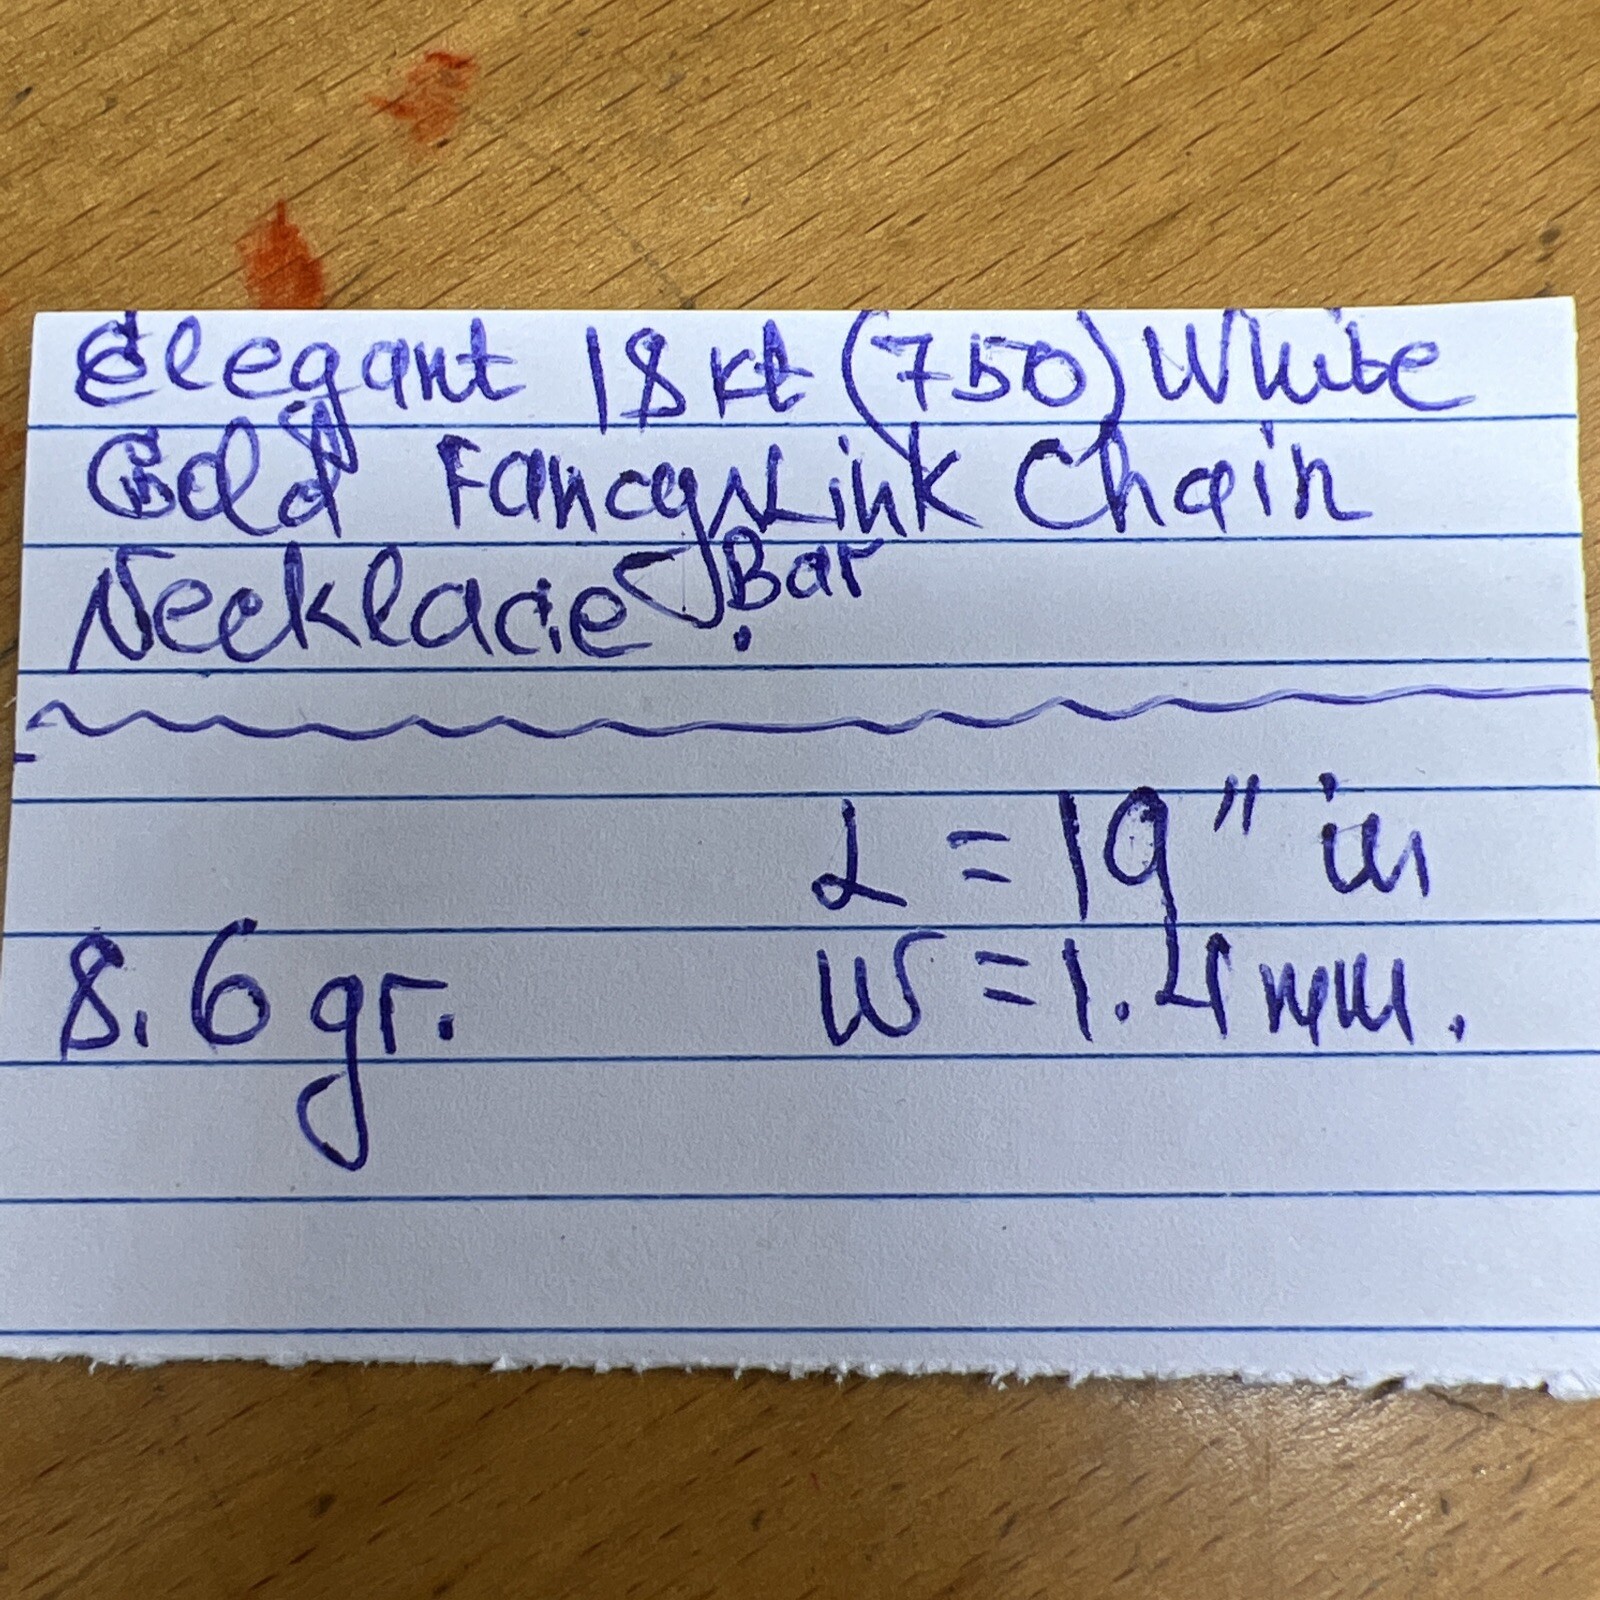 Elegant 18 kt (750) White
Gold Fancy Link Chain
Necklace Bar.
L = 19" in
8.6 gr. W = 1.4 mm.